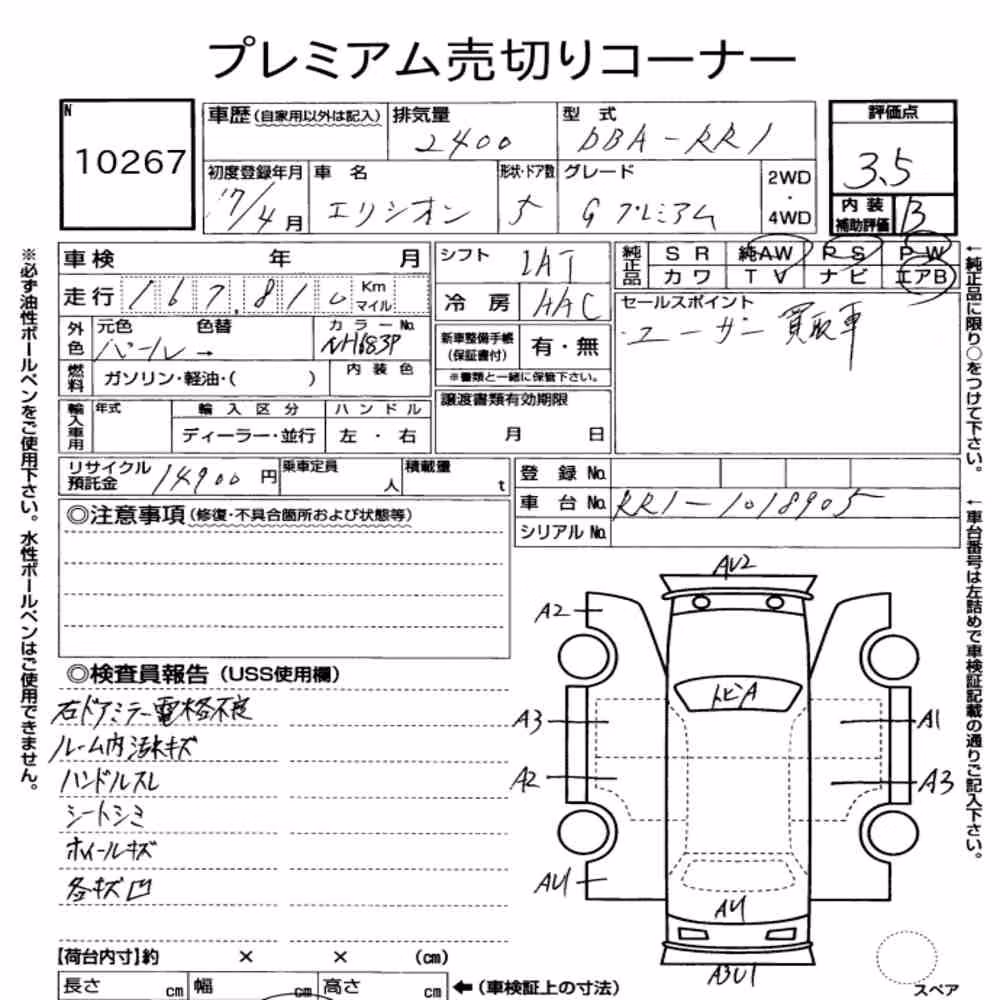 プレミアム売切りコーナー
N
10267
車歴(自家用以外は記入)
排気量
2400
型式
DBA-RR1
評価点
3.5
初度登録年月
17/4月
車名
エリシオン
形状・ドア数
5
グレード
Gプレミアム
2WD
・
4WD
内装
補助評価
B
車検 年 月
シフト
IAT
純正品
SR 純AW PS PW
カワ TV ナビ エアB
走行 167,810 Km
マイル
冷房
AAC
セールスポイント
・ユーザー買取車
外色
元色 色替
パール→
カラーNo.
NH683P
新車整備手帳
(保証書付)
有・無
※書類と一緒に保管下さい。
燃料
ガソリン・軽油・( )
内装色
輸入車用
年式
輸入区分
ディーラー・並行
ハンドル
左・右
譲渡書類有効期限
月 日
リサイクル
預託金
14900円
乗車定員
人
積載量
t
登録No.
車台No. RR1-1018905
シリアルNo.
◎注意事項(修復・不具合箇所および状態等)
◎検査員報告(USS使用欄)
右ドアミラー電格不良
ルーム内 キズ
ハンドルスレ
シートシミ
ホイールキズ
各キズ凹
AU2
A2
トビA
A3
A1
A2
A3
AU
AU
A3U1
【荷台内寸】約 × × (cm)
長さ cm 幅 cm 高さ cm
←(車検証上の寸法)
スペア
※必ず油性ボールペンをご使用下さい。水性ボールペンはご使用できません。
←純正品に限り○をつけて下さい。
←車台番号は左詰めで車検証記載の通りご記入下さい。